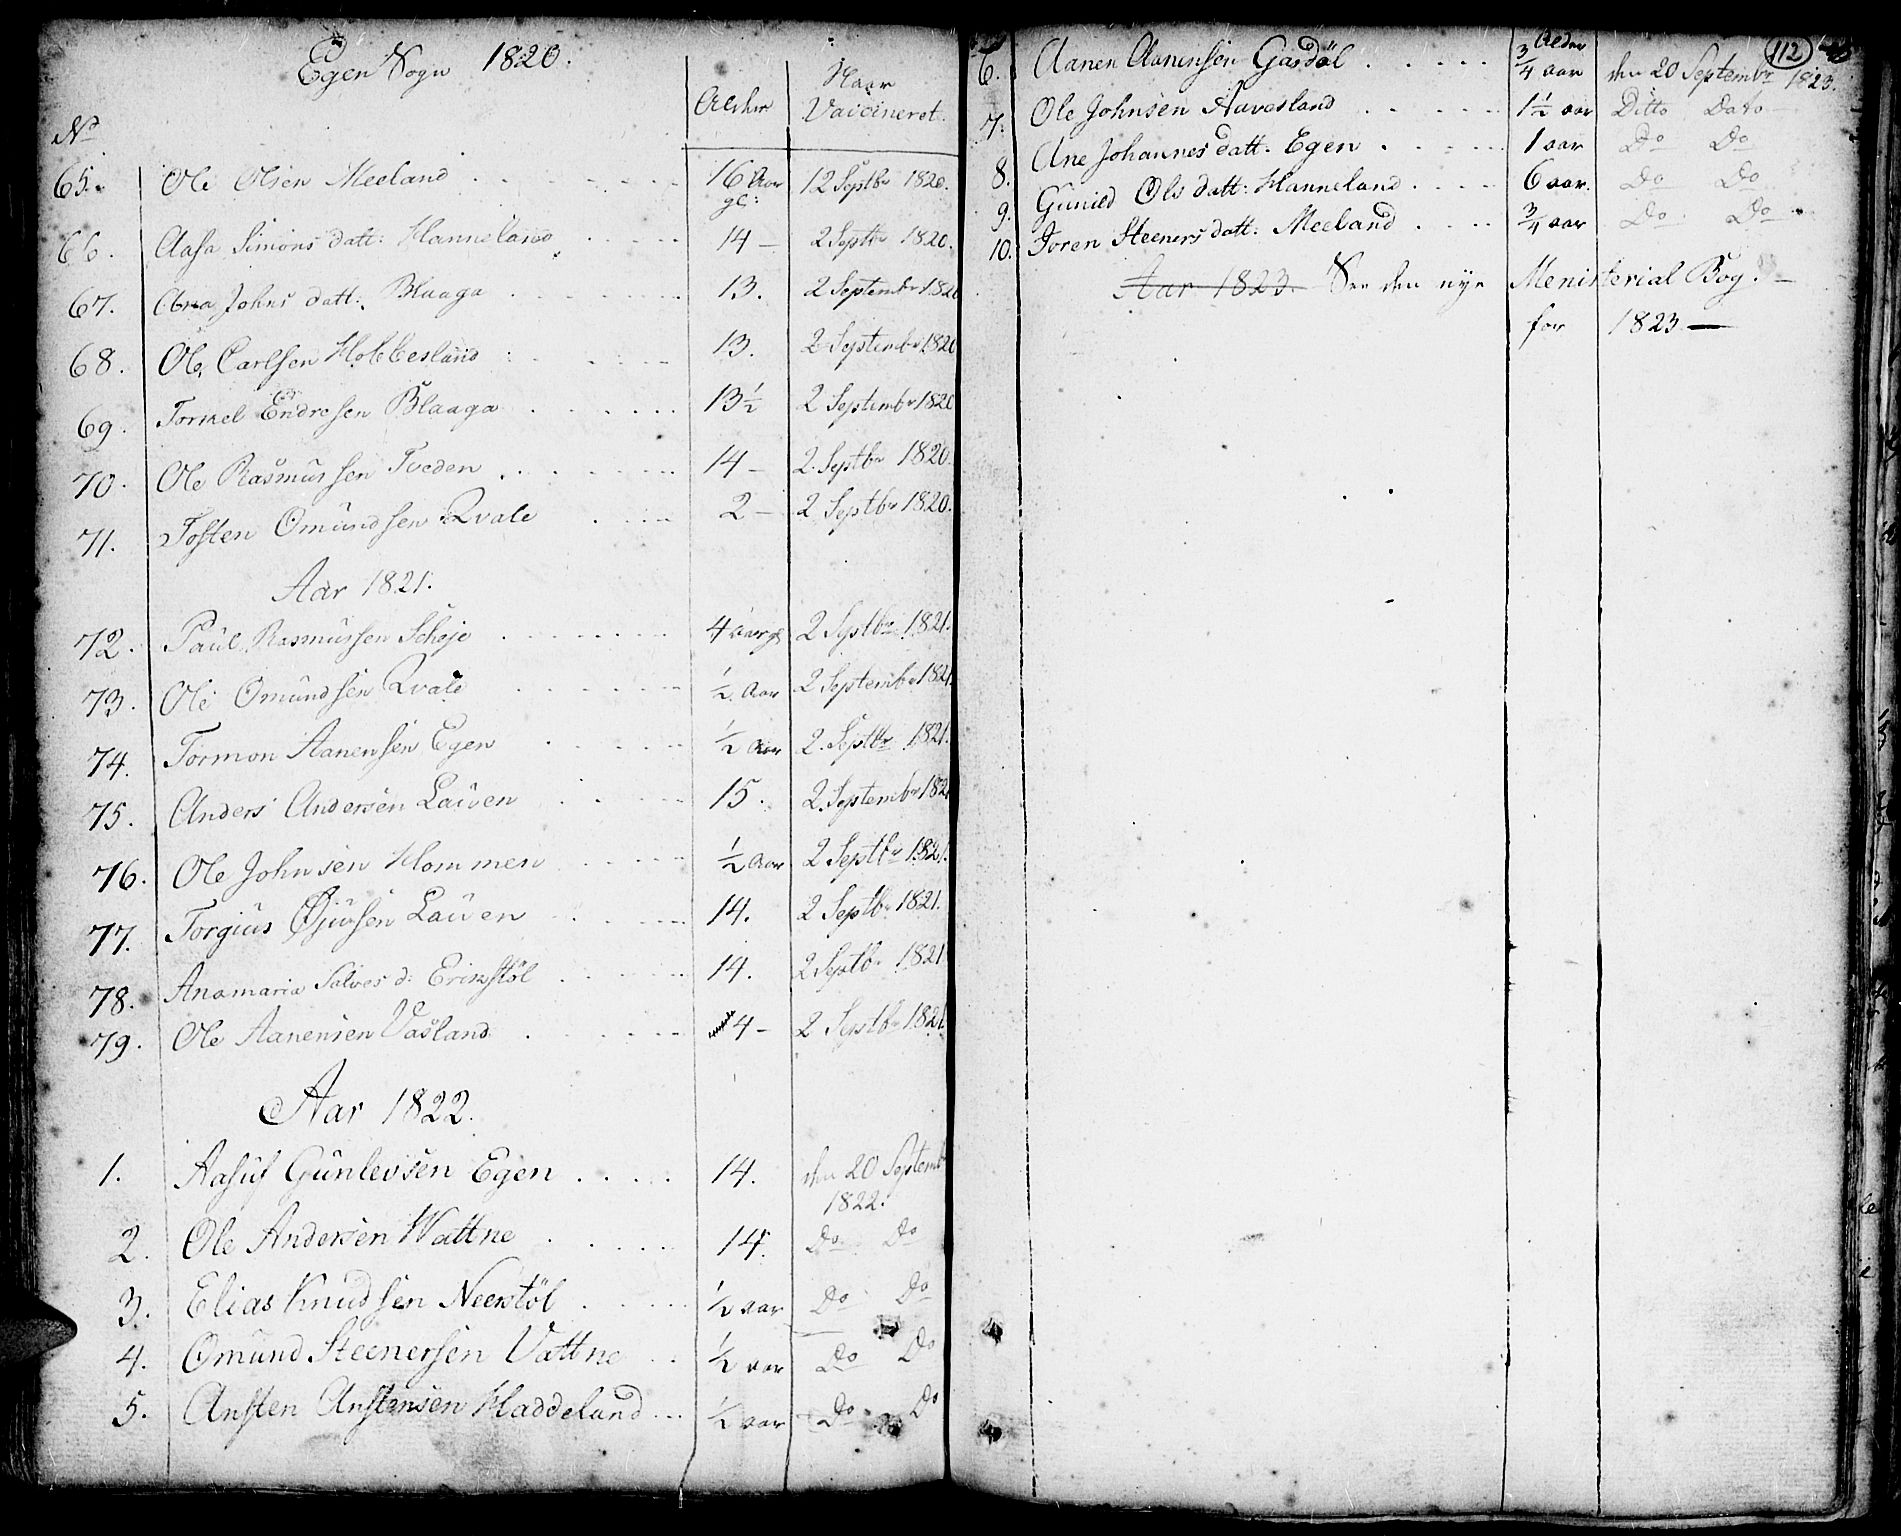 Egen Sogn 1820.
No Alder Naar Vaccineret.
65. Ole Olsen Meeland . . . 16 Aar gl: 12 Septbr 1820.
66. Aasa Simons datt: Hanneland . . . 14 – 2 Septbr 1820.
67. Ana Johns datt: Blaaga . . . 13. 2 Septembr 1820
68. Ole Carlsen Hobbesland . . . 13. 2 Septembr 1820
69. Tormel Endresen Blaaga . . . 13½ 2 Septembr 1820
70. Ole Rasmussen Tveden . . . 14 – 2. Septbr 1820.
71. Tosten Omundsen Qvale . . . 2 – 2 Septbr 1820.
Aar 1821.
72. Paul Rasmussen Scheje . . . 4 aar gl 2 Septbr 1821.
73. Ole Omundsen Qvale . . . ½ Aar 2 Septembr 1821.
74. Tormon Aanensen Egen . . . ½ Aar 2. Septbr 1821.
75. Anders Andersen Lauen . . . 15. 2. Septembr 1821
76. Ole Johnsen Hommen . . . ½ Aar 2 Septbr 1821.
77. Torgius Gjufsen Lauen . . . 14. 2 Septbr 1821.
78. Anamaria Salves d: Erikstöl . . . 14. 2 Septbr 1821
79. Ole Aanensen Vasland . . . 4 – 2 Septbr 1821
Aar 1822.
1. Aasuf Gunlevsen Egen . . . 14. den 20 Septembr
1822.
2. Ole Andersen Wattne . . . 14. Do Do
3. Elias Knudsen Neerstöl . . . ½ aar Do Do
4. Omund Steenersen Vattne . . ½ aar Do Do
5. Ansten Anstensen Haddeland . . . ½ aar Do Do
Alder 112
6. Aanen Aanensen Gasdal . . . ¾ aar den 20 Septembr 1823.
7. Ole Johnsen Aavesland . . . 1½ aar Ditto Dato
8. Ane Johannes datt. Egen . . . 1 aar Do Do
9. Gunild Ols datt: Hanneland . . . 6 aar. Do Do
10. Joren Steeners datt: Meeland . . . ¾ aar Do Do
Aar 1823. See den nye Menisterial Bog. –
for 1823 —